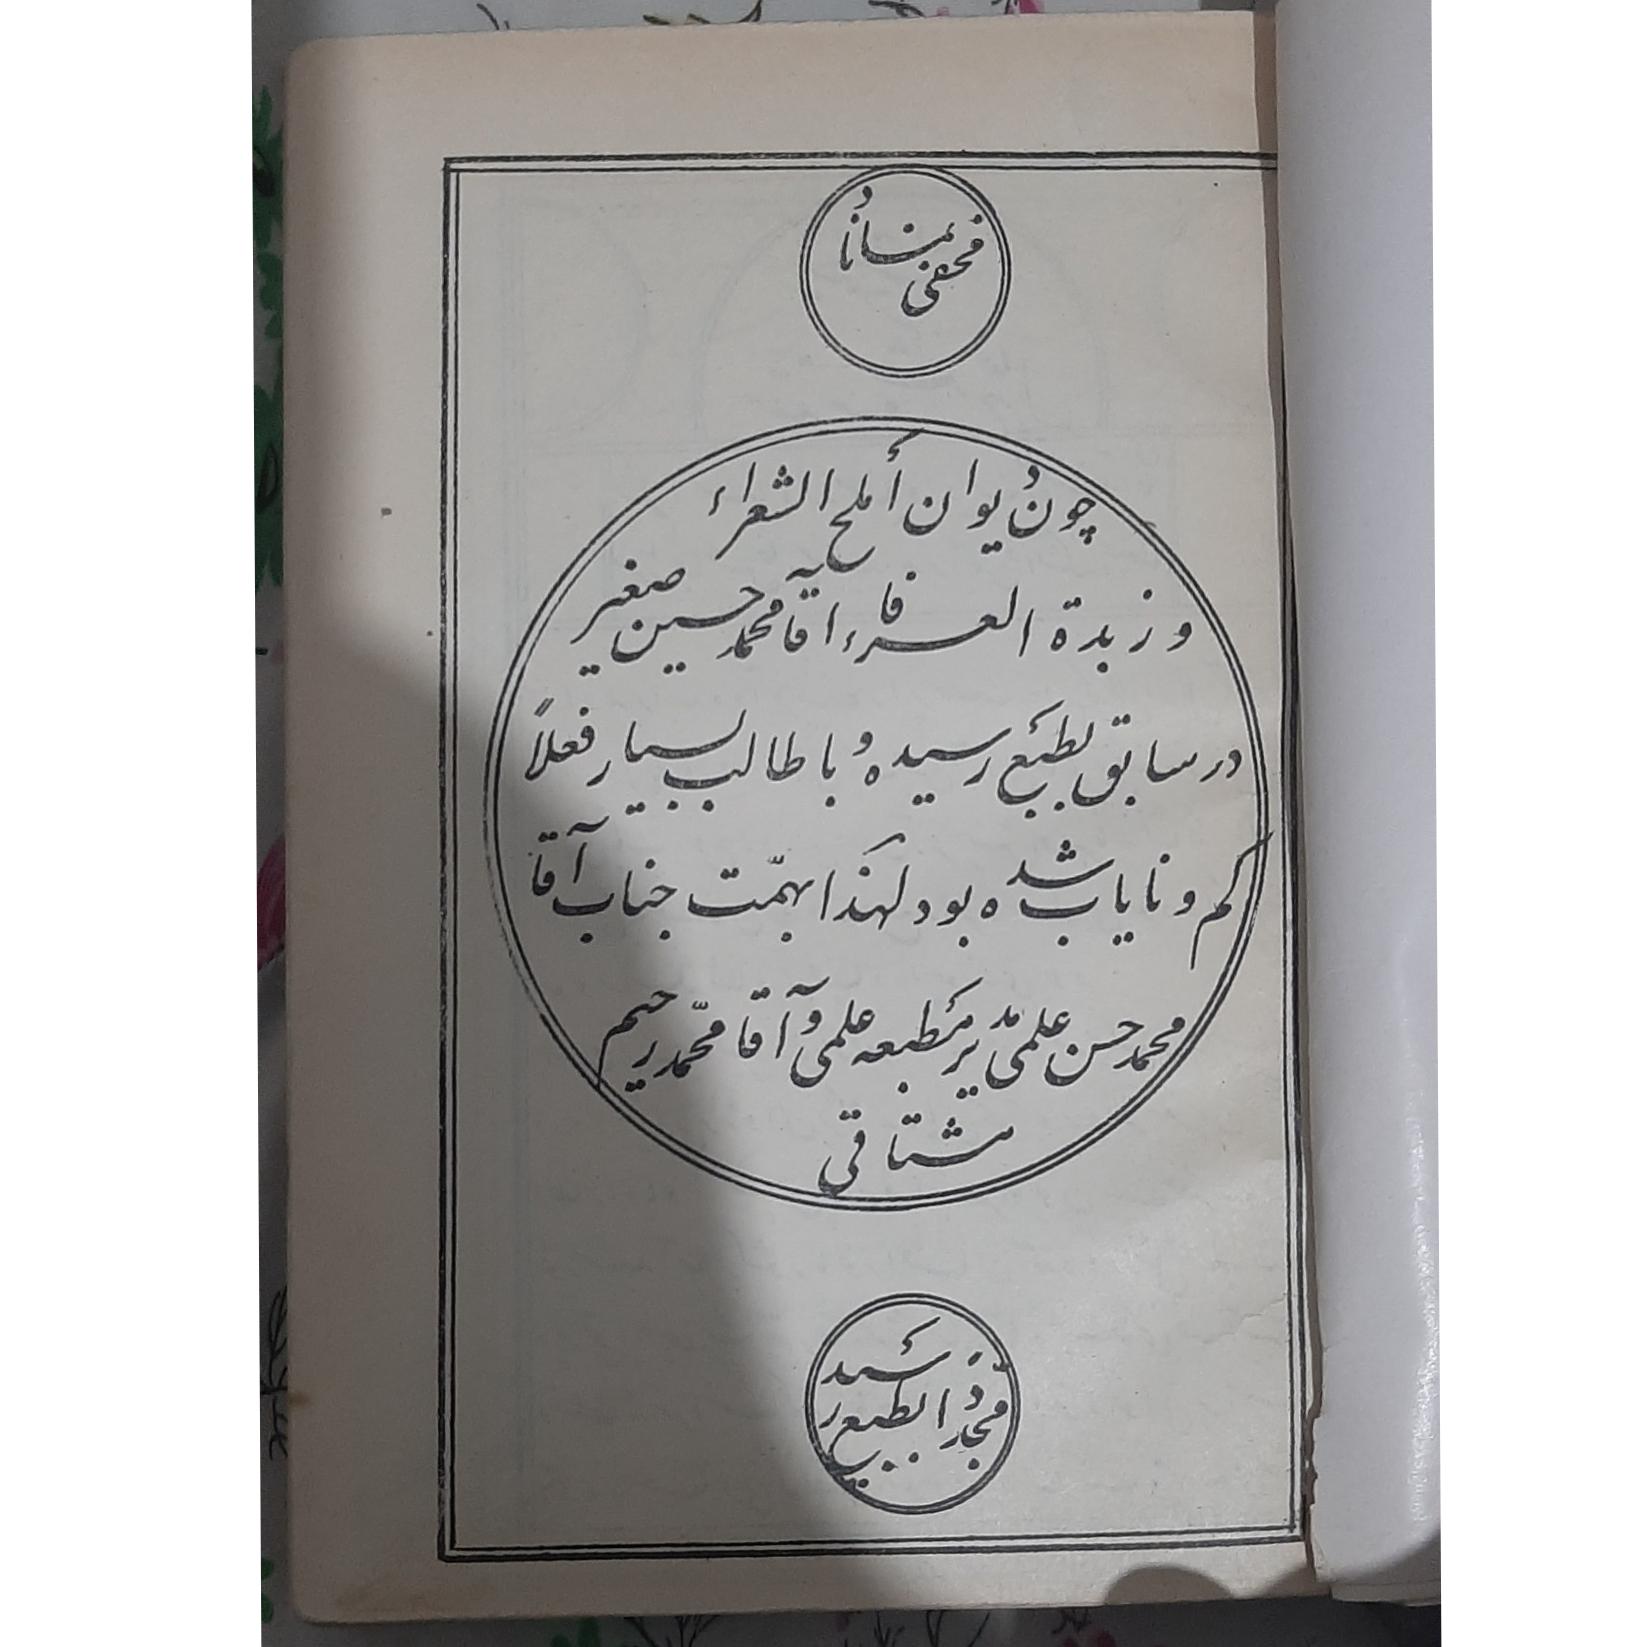 مخفی نماناد
چون دیوان أملح الشعراء
و زبدة العرفاء آقا محمد حسین صغیر
در سابق بطبع رسیده و با طالب بسیار فعلاً
کم و نایاب شده بود لهذا بهمّت جناب آقا
محمد حسن علمی مدیر مطبعه علمی و آقا محمّد رحیم
مشتاقی
مجدّدا بطبع رسید